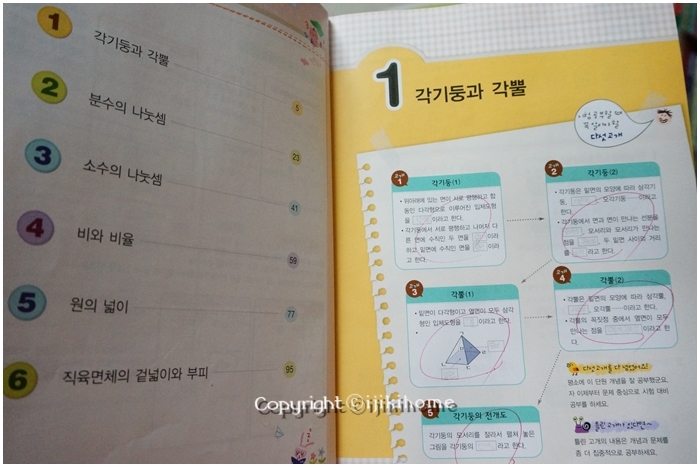 1
각기둥과 각뿔
5
2
분수의 나눗셈
23
3
소수의 나눗셈
41
4
비와 비율
59
5
원의 넓이
77
6
직육면체의 겉넓이와 부피
95
1 각기둥과 각뿔
다섯고개
고개 1
각기둥(1)
• 위아래에 있는 면이 서로 평행하고 합
동인 다각형으로 이루어진 입체도형
을 이라고 한다.
• 각기둥에서 서로 평행하고 나머지 다
른 면에 수직인 두 면을 이라
하고 밑면에 수직인 면을 이라
고 한다.
고개 2
각기둥(2)
• 각기둥은 밑면의 모양에 따라 삼각기
둥, 오각기둥 이라고
한다.
• 각기둥에서 면과 면이 만나는 선분을
모서리와 모서리가 만나는
점을 두 밑면 사이의 거리
를 라고 한다.
고개 3
각뿔(1)
• 밑면이 다각형이고 옆면이 모두 삼각
형인 입체도형을 이라고 한다.
고개 4
각뿔(2)
• 각뿔은 밑면의 모양에 따라 삼각뿔,
오각뿔 이라고 한다.
• 각뿔의 꼭짓점 중에서 옆면이 모두
만나는 점을 이라고 한다.
고개 5
각기둥의 전개도
각기둥의 모서리를 잘라서 펼쳐 놓은
그림을 각기둥의 라고 한다.
다섯고개를 다 넘었어요!
평소에 이 단원 개념을 잘 공부했군요.
자 이제부터 문제 중심으로 시험 대비
공부를 하세요.
틀린 고개가 있다면~
틀린 고개의 내용은 개념과 문제를
좀 더 집중적으로 공부하세요.
Copyright ©ijikihome